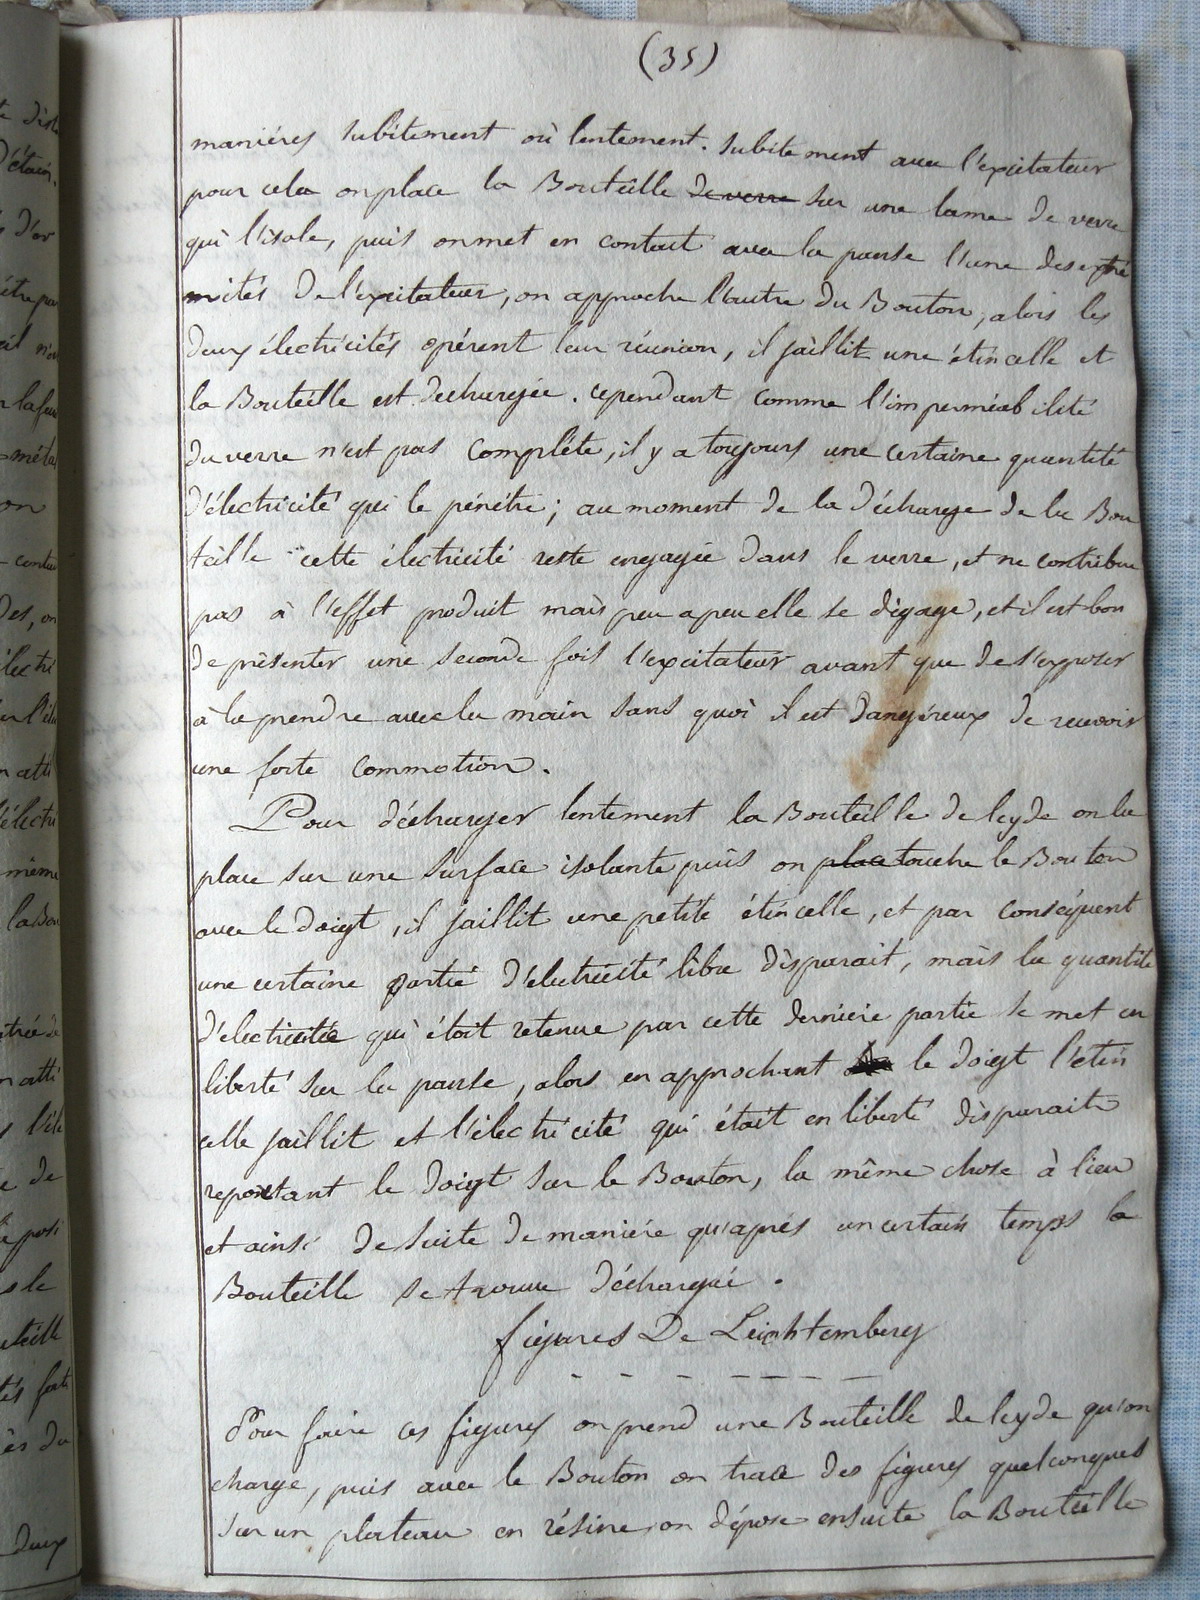 (35)
maniéres subitement où lentement. subitement avec l'expitateur
pour cela on place la Bouteille de verre sur une lame de verre
qui l'isole, puis on met en contact avec la panse l'une des extré
mités De l'expitateur, on approche l'autre du Bouton, alors les
deux électricités opérent leur réunion, il jaillit une étincelle et
la Bouteille est déchargée. cependant comme l'imperméabilité
du verre n'est pas complète, il y a toujours une certaine quantité
d'électricité qui le pénétre; au moment de la décharge de la Bou
teille cette électricité reste engagée dans le verre, et ne contribue
pas à l'effet produit mais peu a peu elle se dégage, et il est bon
de présenter une seconde fois l'excitateur avant que de s'exposer
à la prendre avec la main sans quoi il est dangéreux de recevoir
une forte commotion.
Pour décharger lentement la Bouteille de leyde on la
place sur une surface isolante puis on place touche le Bouton
avec le doigt, il jaillit une petite étincelle, et par conséquent
une certaine partie d'électricité libre disparait, mais la quantité
d'électricité qui étoit retenue par cette derniere partie se met en
liberté sur la panse, alors en approchant le doigt l'étin
celle jaillit et l'électricité qui était en liberté disparait
reportant le doigt sur le Bouton, la même chose à lieu
et ainsi de suite de maniére qu'aprés un certain temps la
Bouteille se trouve déchargée.
figures De Leichtemberg
- - - - - - -
Pour faire ces figures on prend une Bouteille de leyde qu'on
charge, puis avec le Bouton on trace des figures quelconques
sur un plateau en résine, on dépose ensuite la Bouteille